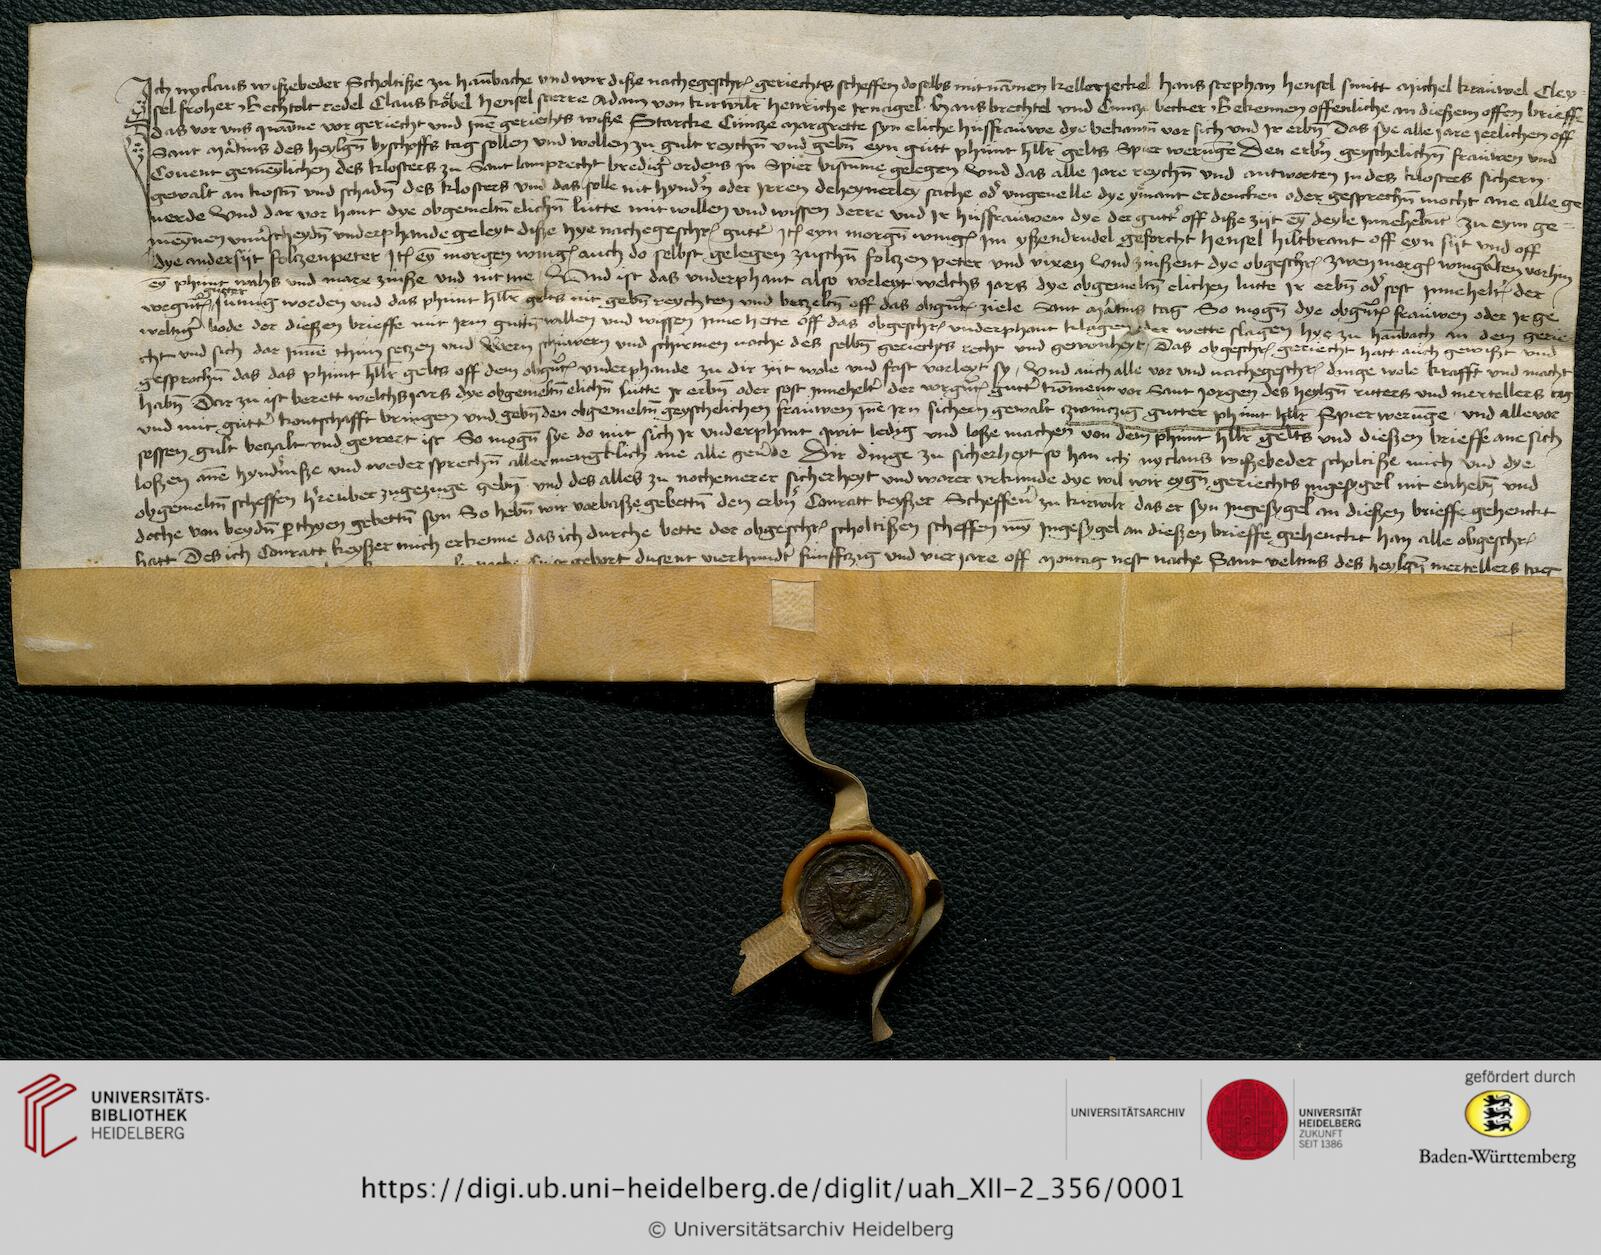 Ich nyclaus wißebeder Scholtiße zu hānbache und wir diße nachegeschr geriechts scheffen doselbs mit namen kellerjeckel hans stephan hensel smitt michel krauwel Cley
sel froher Bechtolt redel Claus köbel hensel sterre Adam von kirwilr henriche irnagel hans brechtel und Cuntz becker Bekennen offenliche an dießem offen brieffe
das vor uns qwame vor geriecht und Jne geriechts wiße Starcke Cuntze margrette syn eliche hussfrauwe dye bekantn vor sich und Jr erbn Das sye alle jare jerlichen off
Sant mātins des heylgn byschoffs tag sollen und wollen zu gult reychn und gebn eyn gutt phunt hllr gelts Spier werunge Den erbrn geyschelichn frauwen und
Covent gemeylichen des klosters zu Sant lamprecht brediger ordens Jn Spier bistume gelegen Und das alle jare reychn und antworten Jn des klosters sichern
gewalt an kostn und schadn des klosters und das solle nit hyndrn oder Jrren deheynerley sache odr ungevelle dye ymant erdencken oder gesprechn mocht ane alle ge
verde Und dar vor hant dye obgemeltn elichn lutte mit willen und wissen derre und Jr hussfrauwen dye der guttr off diße zijt eyn deyle Jnnehebent zu eym ge
meynen unverscheydn underphande geleyt diße hye nachegeschr guttr Jt eyn morgn wingr Jm yßendrudel geforcht hensel hiltbrant off eyn sijt und off
dye ander sijt foltzenpeter Jt ey morgen wingr auch do selbst gelegen zuschn foltzen peter und vixen Und zinßent dye obgeschr zwen morg wingarten vorhin
ey phunt wahs und marx zinße und nit me Und ist das underphant also vorleyt welchs jars dye obgemeltn elichen lutte Jr erbn odr sost Jnneheltr der
vorgutr gutter sumig worden und das phunt hllr gelts nit gebn reychten und betzeltn off das obgntr ziele Sant mātins tag So mogn dye obgntr frauwen oder Jr ge
weltigr bode der dießen brieffe mit Jrm guttn willen und wissen Jnne hette off das obgeschr underphant klagen oder wette slagen hye zu hānbach an dem gerie
cht und sich dar Jnne thun setzen und wern schuwern und schirmen nache des selbn geriechts recht und gewonheyt Das obgeschr geriecht hatt auch gewißt und
gesprochn das das phunt hllr gelts off dem obgntr underphande zu dir zijt wole und fast vorleyt sy Und auch alle vor und nachegeschr dinge wole krafft und macht
habn Dar zu ist berett welchs jars dye obgemeltn elichn lutte Jr erbn oder sost Jnneheltr der vorgntr guttr koment vor Sant Jorgen des heylgn ritters und mertellers tag
und mit gutter kontschafft bringen und gebn den obgemeltn geyschelichen frauwen Jne Jrn sichern gewalt zwentzig gutter phunt hllr Spier werunge und alle vor
sessen gult betzalt und gewert ist So mogn sye do mit sich Jr underphant qwit ledig und loße machen von dem phunt hllr gelts und dießen brieffe ane sich
loßen ane hyndrniße und weder sprechn allermenglich ane alle geverde Dir dinge zu sicherheyt so han ich nyclaus wißebeder scholtiße mich und dye
obgemeltn scheffen hrauber zugezuge gebn und des alles zu nochemerer sicherheyt und warer urkunde dye wil wir eygn geriechts ingesygel nit enhebn und
doche von beydn pthyen gebettn syn So hebn wir vorbaße gebettn den erbrn Conratt keyßer Scheffen zu kirwilr das er syn Jngesygel an dießen brieffe gehenckt
hatt Des ich Conratt keyßer mich erkenne das ich durche bette der obgeschr scholtißen scheffen my Jngesygel an dießen brieffe gehenckt han alle obgeschr
nache gebort dusent vierhundr funfftzig und vier jare off montag nest nache Sant veltins des heylgn mertellers tag
UNIVERSITÄTS-
BIBLIOTHEK
HEIDELBERG
UNIVERSITÄTSARCHIV
UNIVERSITÄT
HEIDELBERG
ZUKUNFT
SEIT 1386
gefördert durch
Baden-Württemberg
https://digi.ub.uni-heidelberg.de/diglit/uah_XII-2_356/0001
© Universitätsarchiv Heidelberg